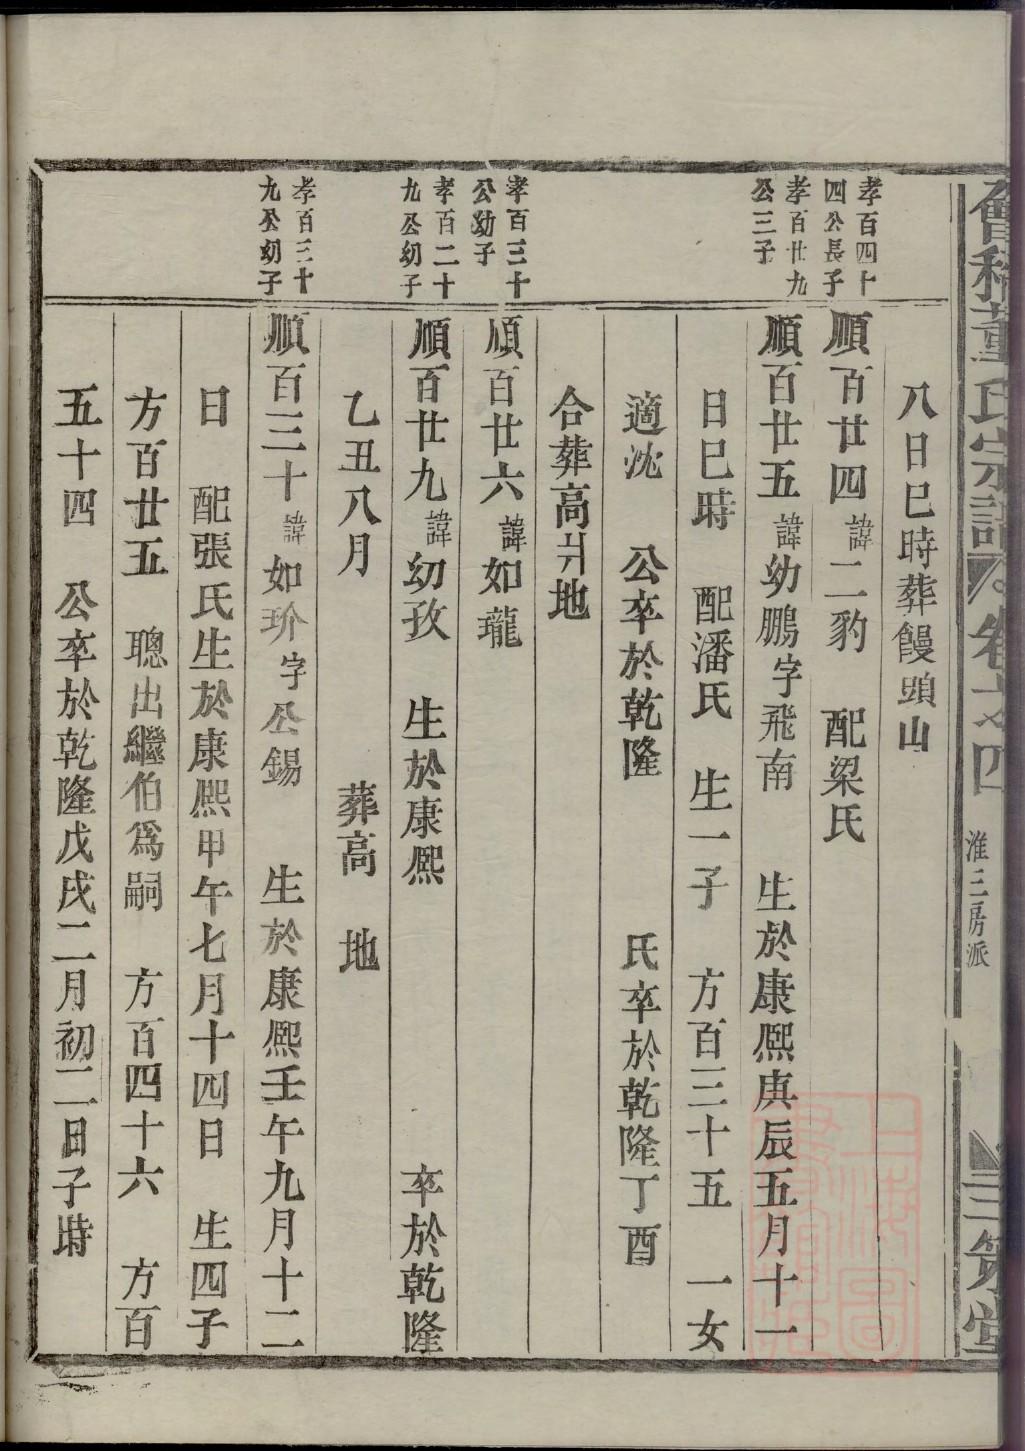 會稽董氏宗譜
卷十四
淮三房派
三策堂
八日巳時葬饅頭山
孝百四十
四公長子
順百廿四諱二豹 配梁氏
孝百廿九
公三子
順百廿五諱幼鵬字飛南 生於康熙庚辰五月十一
日巳時 配潘氏 生一子 方百三十五 一女
適沈 公卒於乾隆 氏卒於乾隆丁酉
合葬高爿地
孝百三十
公幼子
順百廿六諱如瓏
孝百二十
九公幼子
順百廿九諱幼孜 生於康熙 卒於乾隆
乙丑八月 葬高 地
孝百三十
九公幼子
順百三十諱如玠字公錫 生於康熙壬午九月十二
日 配張氏生於康熙甲午七月十四日 生四子
方百廿五 聰出繼伯爲嗣 方百四十六 方百
五十四 公卒於乾隆戊戌二月初二日子時
上海圖書館藏